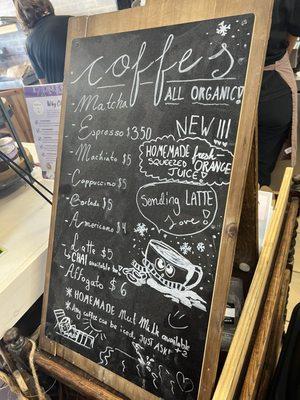 coffees
ALL ORGANIC!
Matcha
Espresso $3.50
Machiato $5
Cappuccino $5
Cortado $5
Americano $4
Latte $5
↳CHAI available too!
Affogato $6
NEW!!!
HOMEMADE fresh
SQUEEZED ORANGE
JUICE
Sending LATTE
Love!
* HOMEMADE Nut Milk available
* Any coffee can be iced, Just ASK +$2